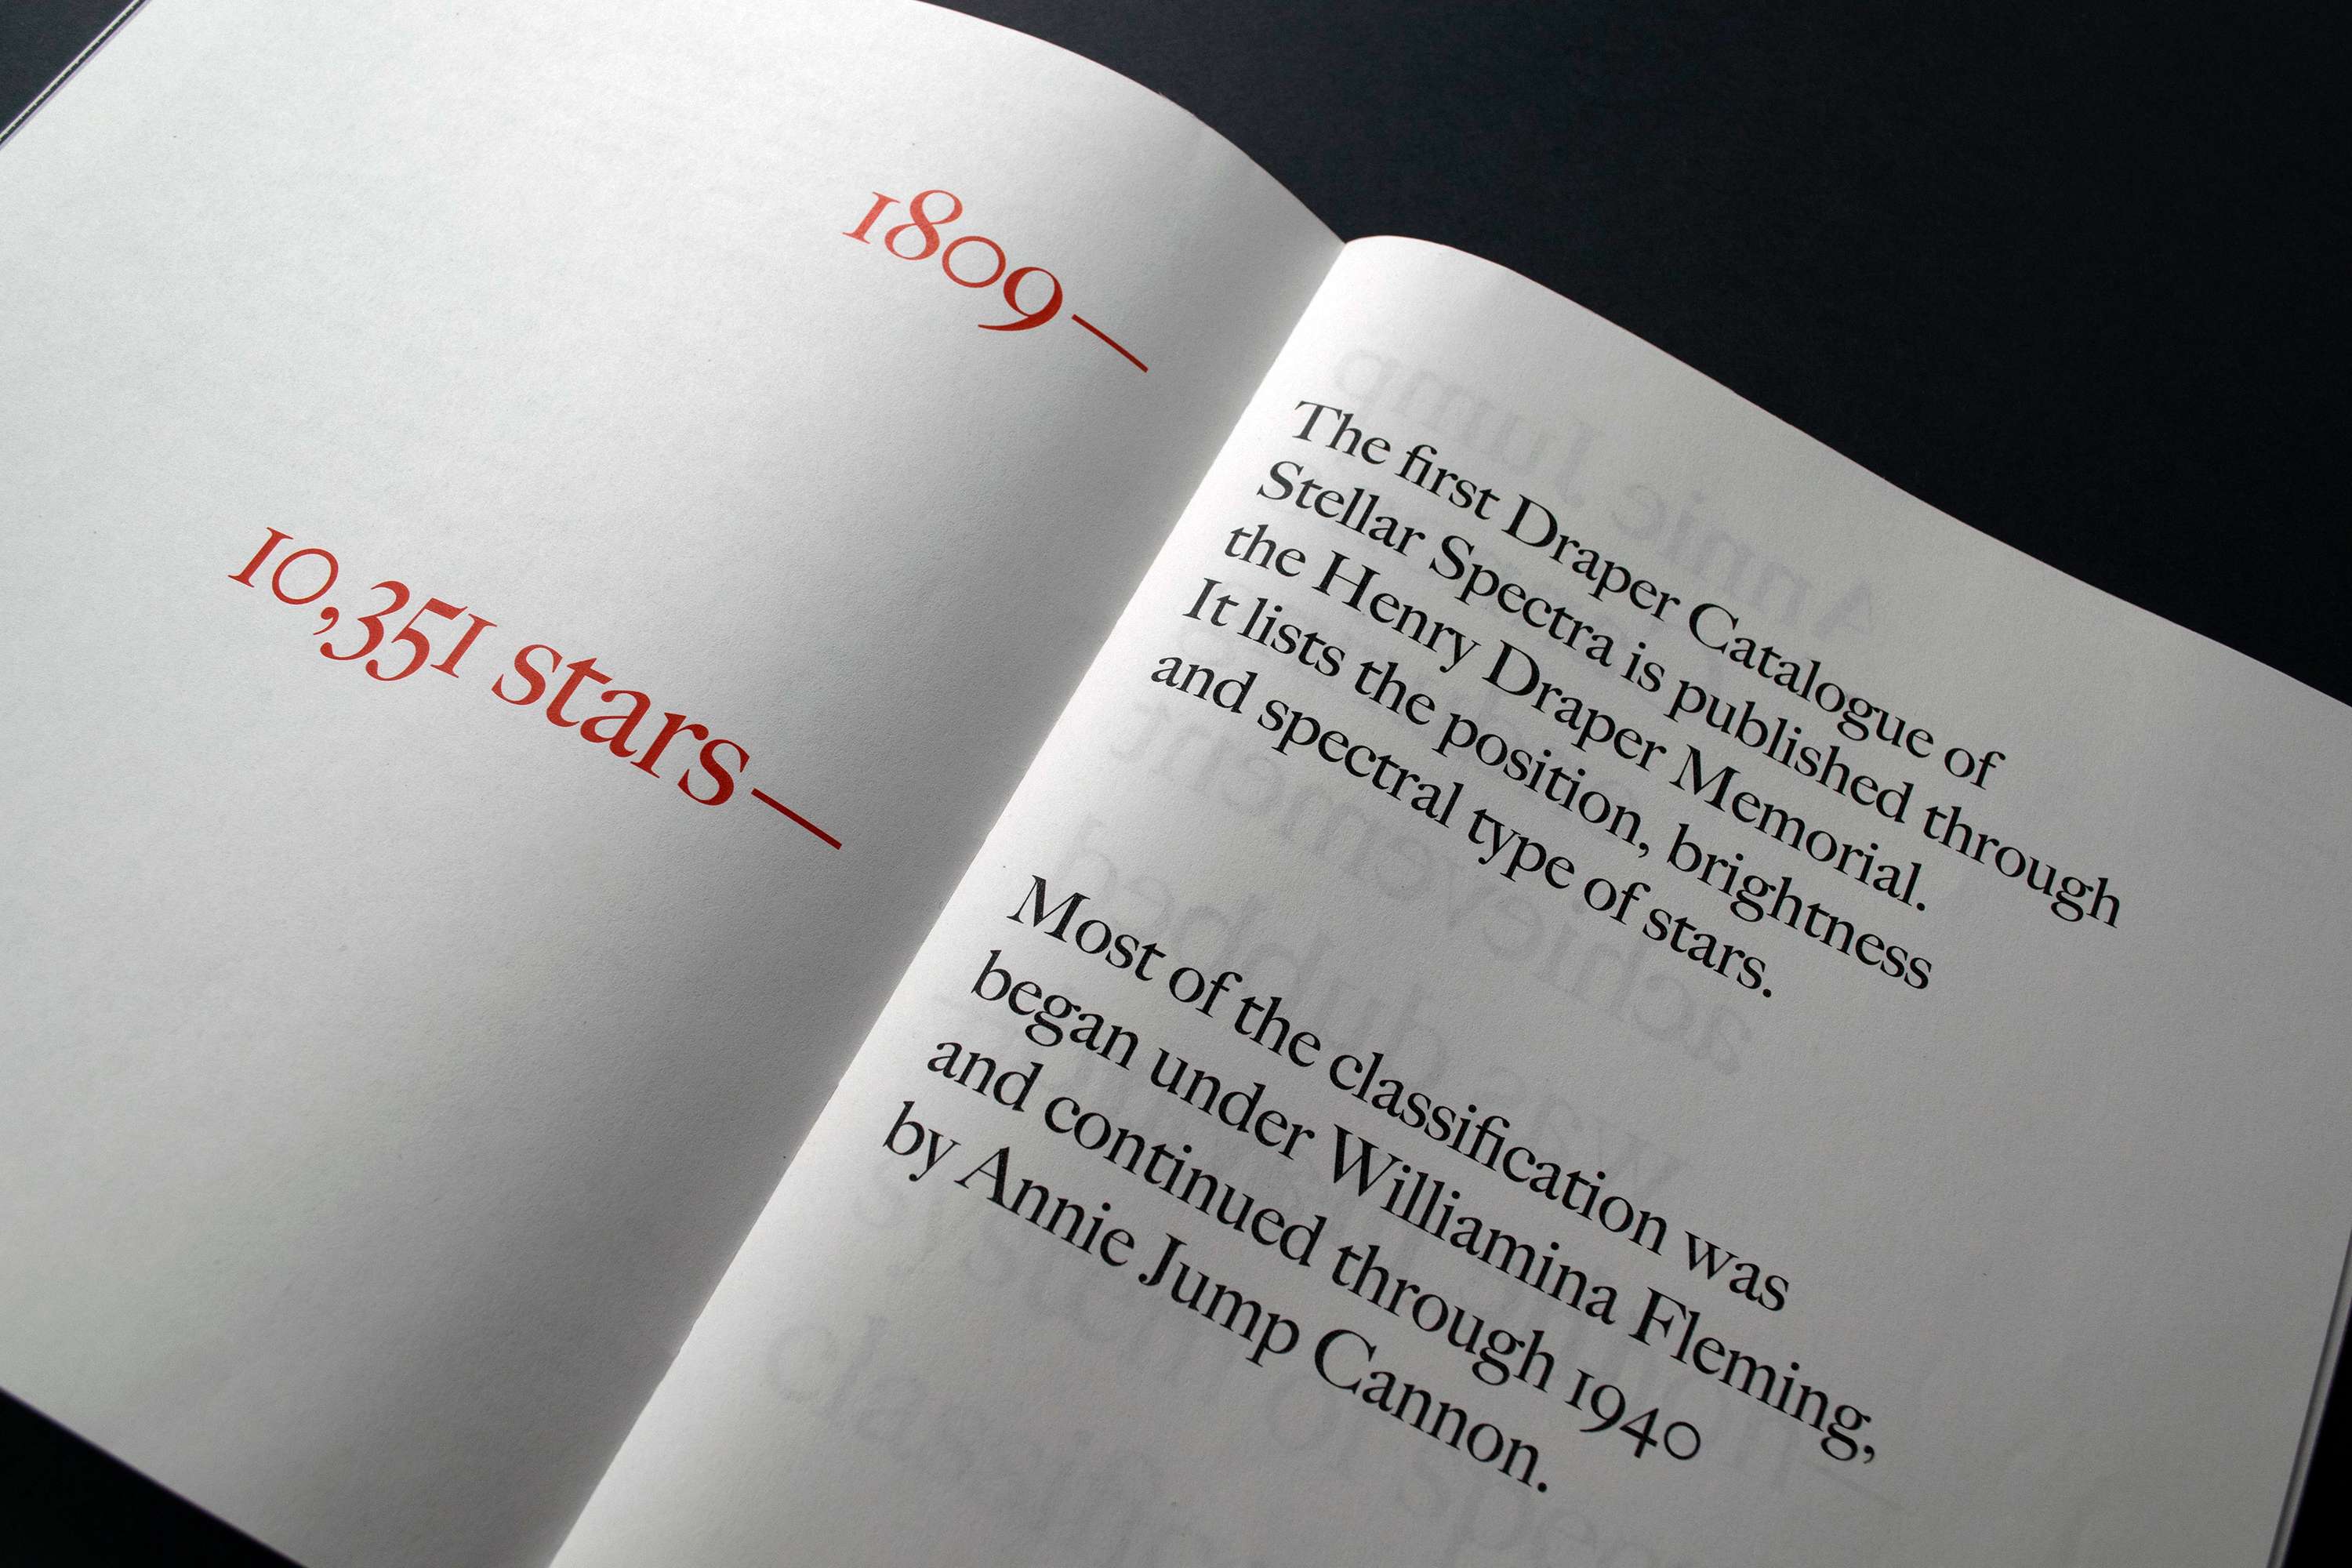 1809—
10,351 stars—
The first Draper Catalogue of
Stellar Spectra is published through
the Henry Draper Memorial.
It lists the position, brightness
and spectral type of stars.
Most of the classification was
began under Williamina Fleming,
and continued through 1940
by Annie Jump Cannon.